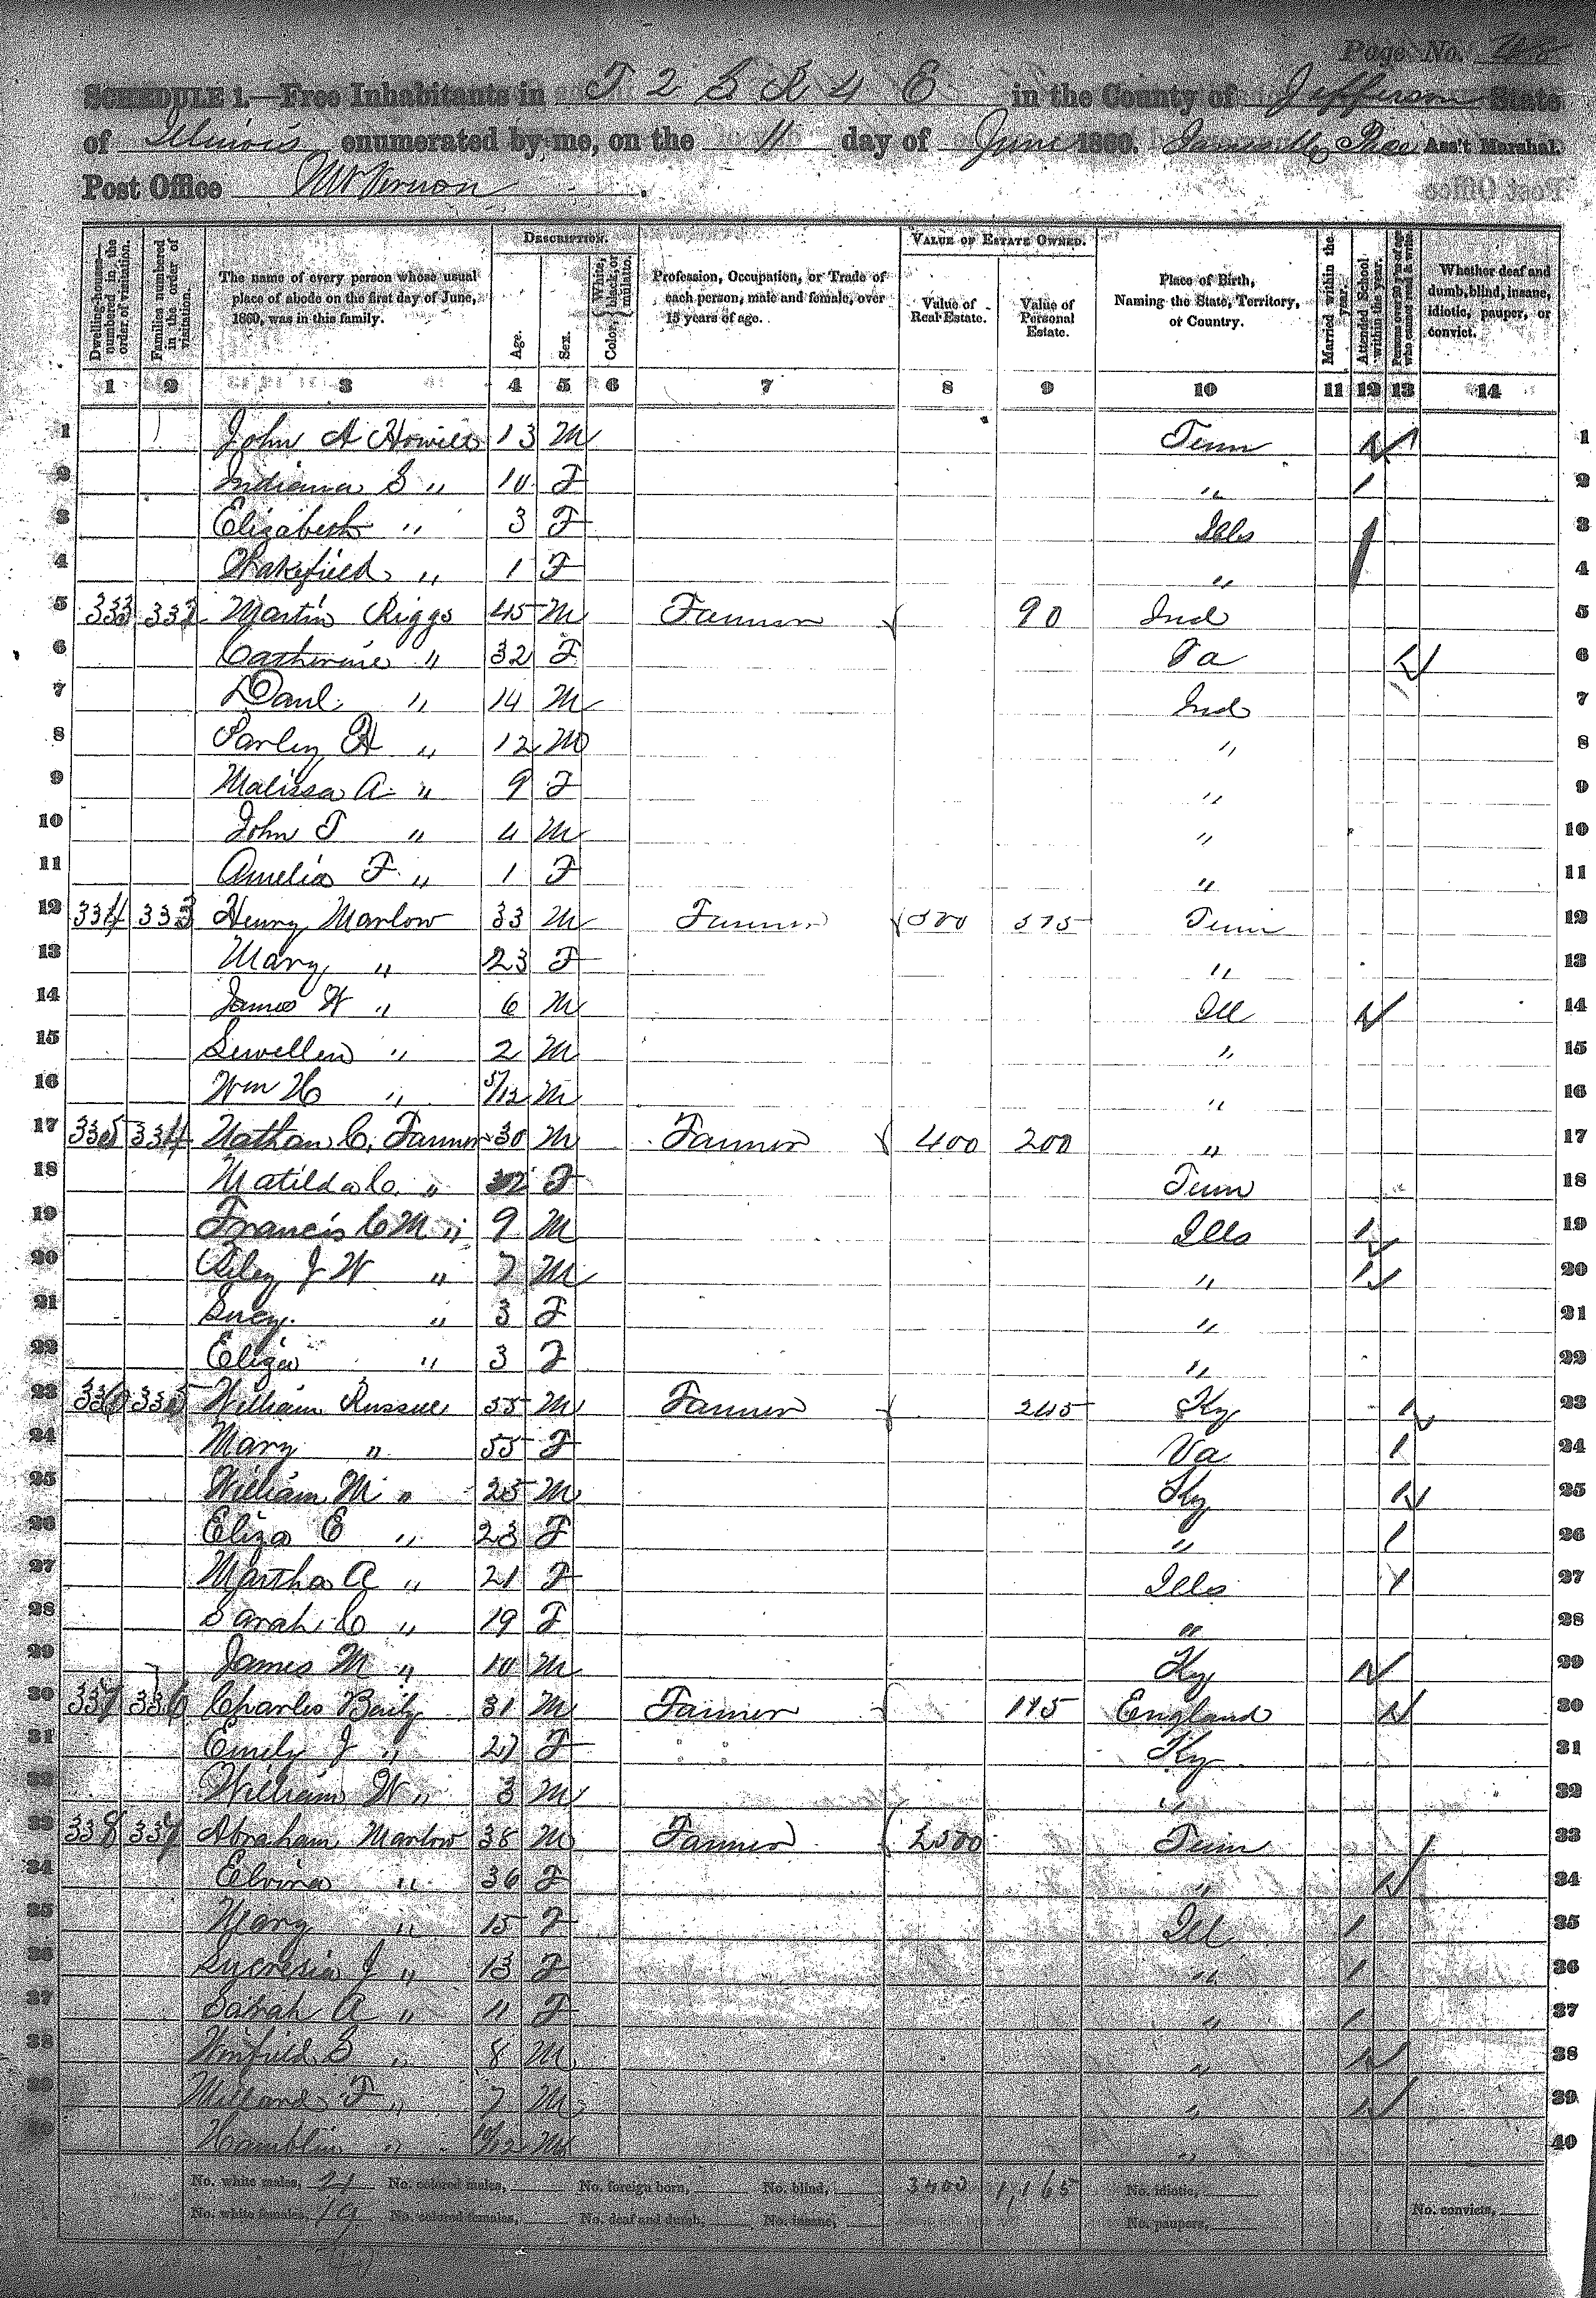 Page No.
SCHEDULE 1.—Free Inhabitants in T 2 S R 4 E in the County of Jefferson State
of Illinois enumerated by me, on the 11 day of June 1860. Ass't Marshal.
Post Office Mt Vernon.
Dwelling-houses—numbered in the order of visitation. Families numbered in the order of visitation. The name of every person whose usual place of abode on the first day of June, 1860, was in this family. DESCRIPTION. Age. Sex. Color, {White, black, or mulatto. Profession, Occupation, or Trade of each person, male and female, over 15 years of age. VALUE OF ESTATE OWNED. Value of Real Estate. Value of Personal Estate. Place of Birth, Naming the State, Territory, or Country. Married within the year. Attended School within the year. Persons over 20 y'rs of age who cannot read & write. Whether deaf and dumb, blind, insane, idiotic, pauper, or convict.
1 2 3 4 5 6 7 8 9 10 11 12 13 14
1 John A 13 M Tenn 1 1
2 Indiana S " 10 F " 1 2
3 Elizabeth " 3 F Ills 3
4 Wakefield " 1 F " 4
5 333 332 Martin Riggs 45 M Farmer 90 Ind 5
6 Catherine " 32 F 1 6
7 Danl " 14 M Ind 7
8 Parley H " 12 M " 8
9 Malissa A " 9 F " 9
10 John T " 4 M " 10
11 Amelia F " 1 F " 11
12 334 333 Henry Marlow 33 M Farmer Tenn 12
13 Mary " 23 F " 13
14 James W " 6 M Ill 1 14
15 Lewellen " 2 M " 15
16 Wm H " 5/12 M " 16
17 335 334 Nathan C. Farmer 30 M Farmer 400 200 " 17
18 Matilda C. " F Tenn 18
19 Francis C M " 9 M Ills 1 19
20 Riley J W " 7 M " 1 20
21 Lucy " 3 F " 21
22 Eliza " 3 F " 22
23 336 335 William Russell 55 M Farmer 245 Ky 1 23
24 Mary " 55 F Va 1 24
25 William M " 25 M Ky 1 25
26 Eliza E " 23 F " 1 26
27 Martha A " 21 F Ills 1 27
28 Sarah C " 19 F " 28
29 James M " 10 M Ky 1 29
30 337 336 Charles Baily 31 M Farmer England 1 30
31 Emily J " 27 F Ky 31
32 William W " 3 M " 32
33 338 337 Abraham Marlow 38 M Farmer 2500 Tenn 33
34 Elvina " 36 F " 1 34
35 Mary " 15 F Ill 1 35
36 Lucresia J " 13 F " 1 36
37 Sarah A " 11 F " 1 37
38 Winfield S " 8 M " 1 38
39 Millard F " 7 M " 1 39
40 Hamblin " 10/12 M " 40
No. white males, 21 No. colored males, No. foreign born, No. blind, 1,165 No. idiotic,
No. white females, 19 No. colored females, No. deaf and dumb, No. insane, No. paupers, No. convicts,